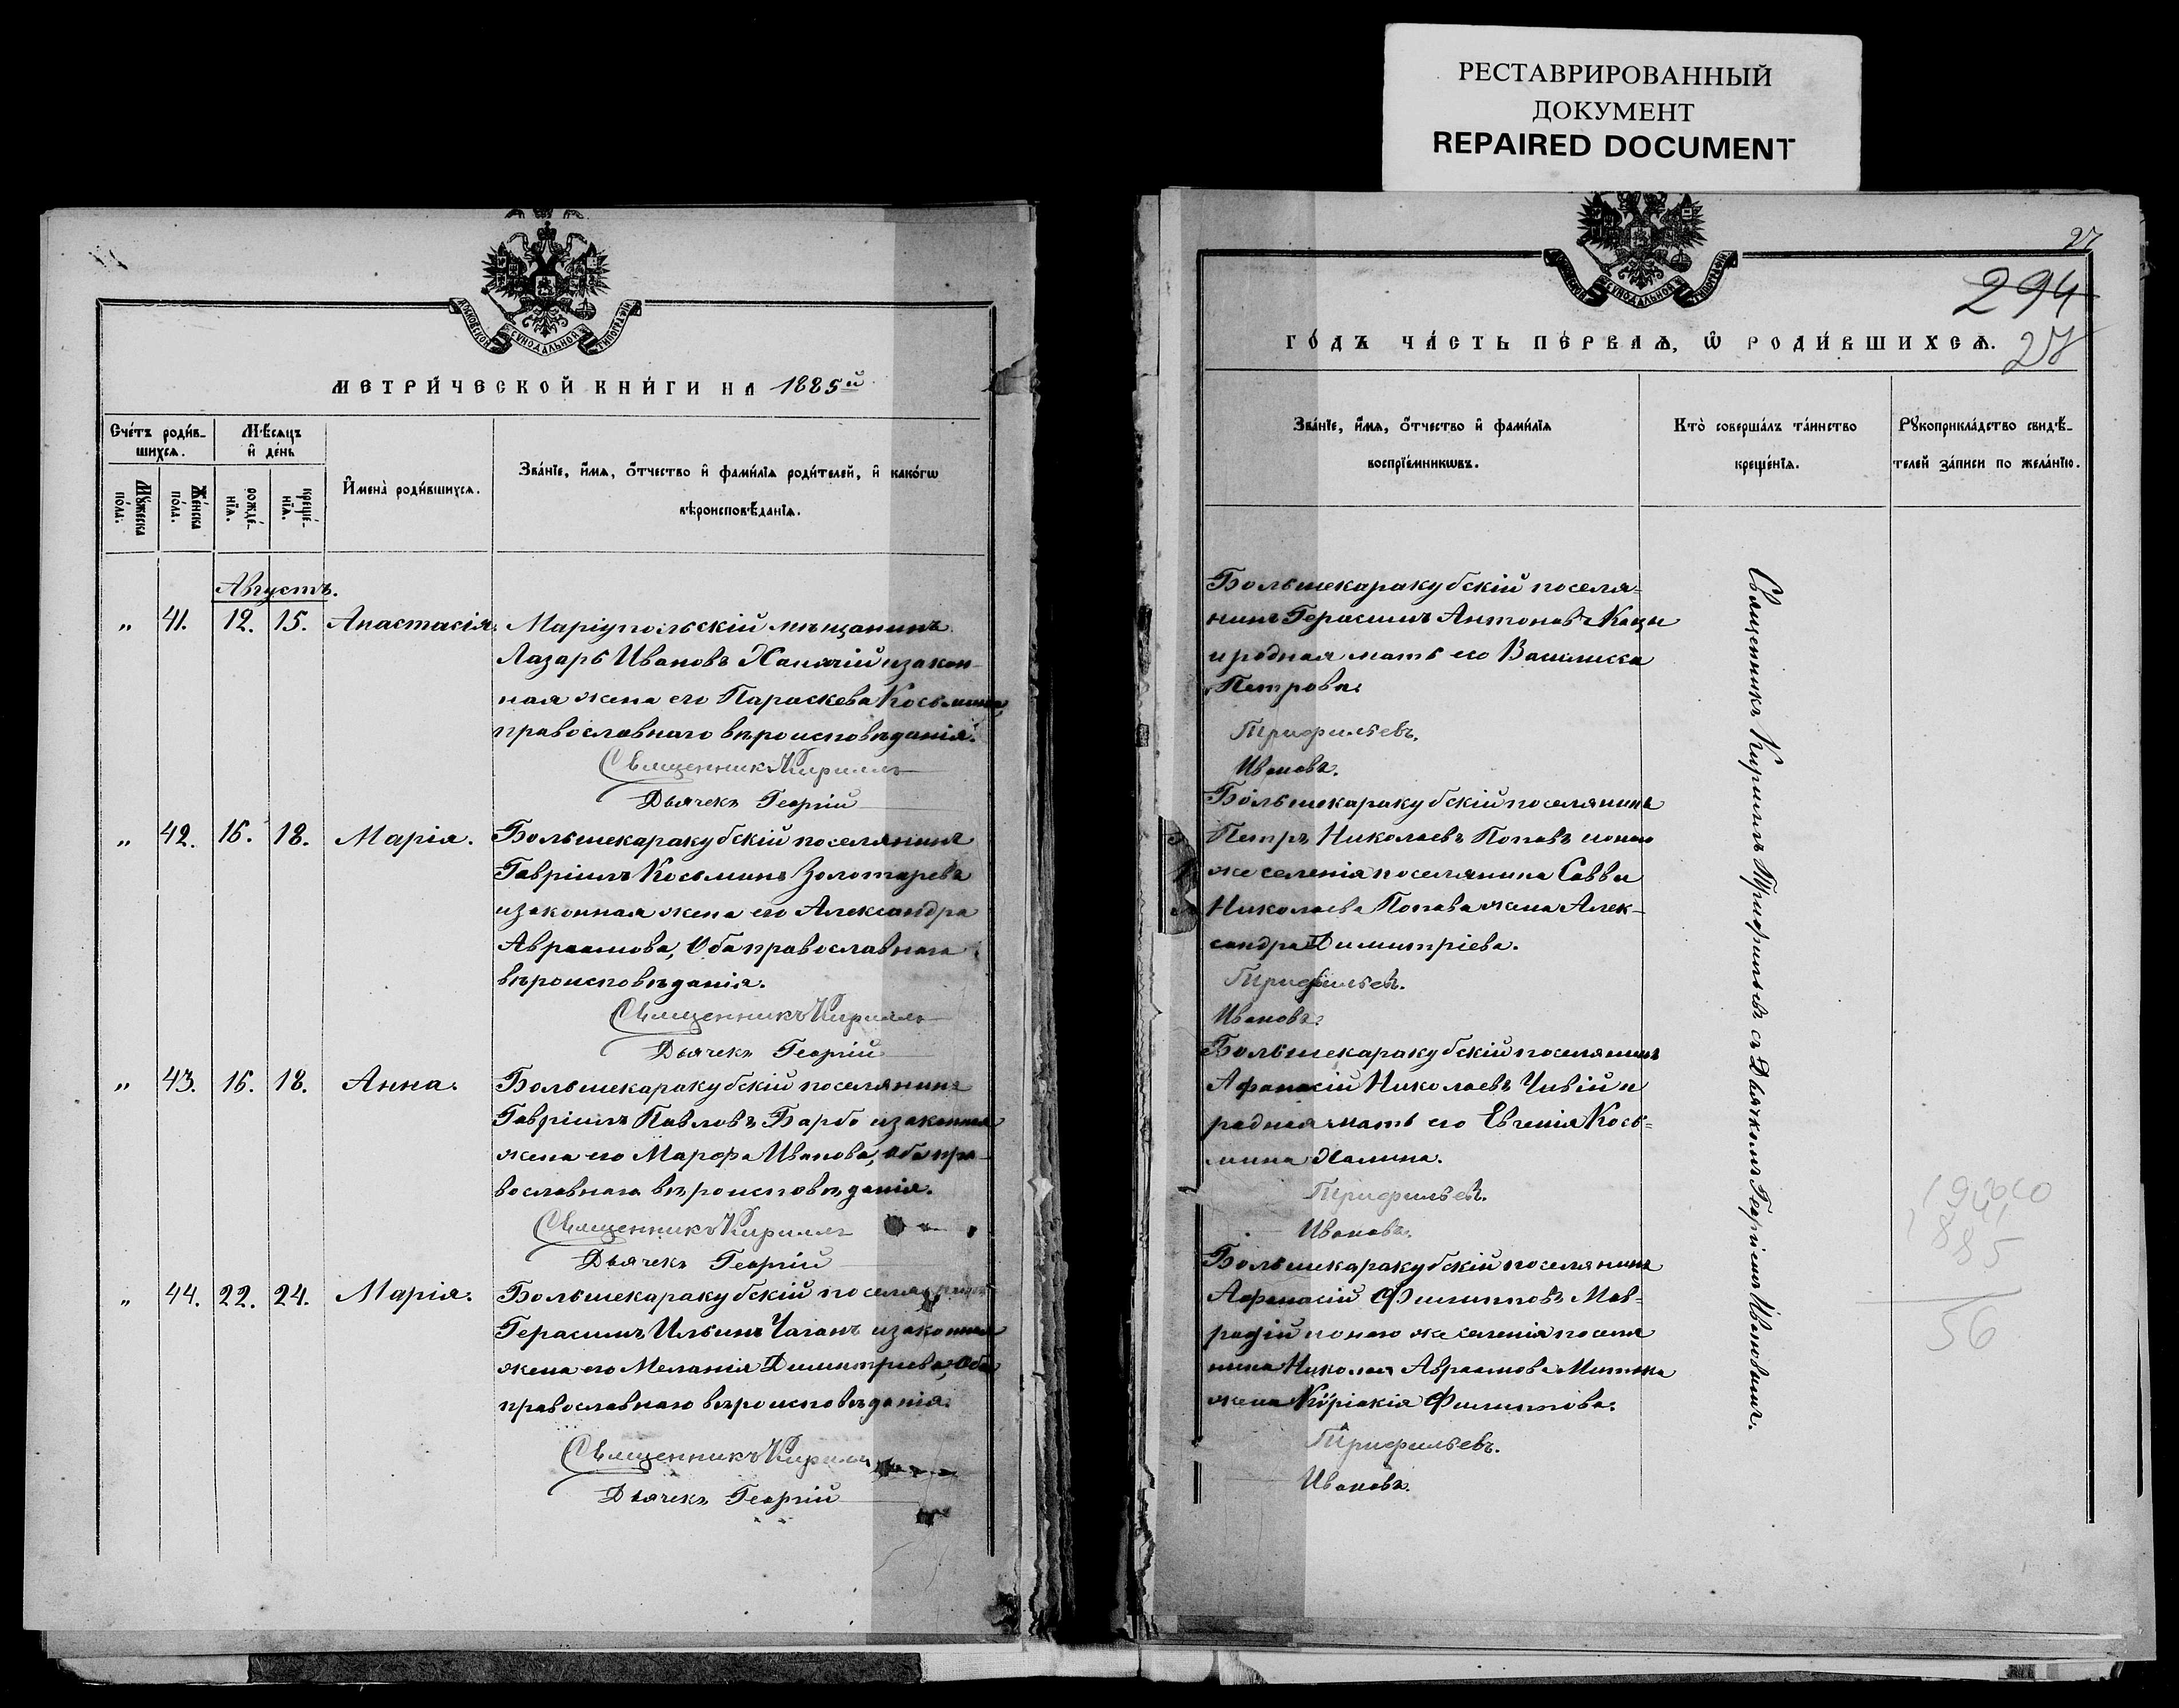 РЕСТАВРИРОВАННЫЙ
ДОКУМЕНТ
REPAIRED DOCUMENT
МЕТРИ́ЧЕСКОЙ КНИ́ГИ НА 1885й
Сче́тъ роди́в-
шихсѧ.
Мѣ́сѧцъ
и҆ де́нь
Мꙋ́жеска
по́ла.
Же́нска
по́ла.
рожде́-
нїѧ.
креще́-
нїѧ.
И҆мена̀ роди́вшихсѧ.
Зва́нїе, и҆́мѧ, ѻ҆́тчество и҆ фами́лїѧ роди́телей, и҆ како́гѡ
вѣроисповѣ́данїѧ.
Августъ.
" 41. 12. 15. Анастасія.
Маріупольскій мѣщанинъ
Лазарь Ивановъ Ханачій и закон-
ная жена его Параскева Косьмина,
православнаго вѣроисповѣданія.
Священникъ Кириллъ
Дьячекъ Георгій
" 42. 16. 18. Марія.
Большекаракубскій поселянинъ
Гавріилъ Косьминъ Золотаревъ
и законная жена его Александра
Авраамова, Оба православнаго
вѣроисповѣданія.
Священникъ Кириллъ
Дьячекъ Георгій
" 43. 16. 18. Анна.
Большекаракубскій поселянинъ
Гавріилъ Павловъ Барбо и законная
жена его Марфа Иванова, Оба пра-
вославнаго вѣроисповѣданія.
Священникъ Кириллъ
Дьячекъ Георгій
" 44. 22. 24. Марія.
Большекаракубскій поселянинъ
Герасимъ Ильинъ Чаганъ и законная
жена его Меланія Димитріева, Оба
православнаго вѣроисповѣданія.
Священникъ Кириллъ
Дьячекъ Георгій
27
294
27
ГО́ДЪ ЧА́СТЬ ПЕ́РВАѦ, Ѿ РОДИ́ВШИХСѦ.
Зва́нїе, и҆́мѧ, ѻ҆́тчество и҆ фами́лїѧ
воспрїе́мникѡвъ.
Кто̀ соверша́лъ та́инство
креще́нїѧ.
Рꙋкоприкла́дство свидѣ́-
телей за́писи по жела́нїю.
Большекаракубскій поселя-
нинъ Герасимъ Антоновъ Кацы
и родная мать его Василисса
Петрова.
Трифильевъ.
Ивановъ.
Большекаракубскій поселянинъ
Петръ Николаевъ Поповъ и оного
же селенія поселянина Саввы
Николаева Попова жена Алек-
сандра Димитріева.
Трифильевъ.
Ивановъ.
Большекаракубскій поселянинъ
Афанасій Николаевъ Чивій и
родная мать его Евгенія Кось-
мина Халина.
Трифильевъ.
Ивановъ.
Большекаракубскій поселянинъ
Афанасій Филипповъ Мав-
родій и оного же селенія поселя
нина Николая Авраамова
жена Кѵріакія Филиппова.
Трифильевъ.
Ивановъ.
Священникъ Кириллъ Трифильевъ съ Дьячкомъ Георгіемъ Ивановымъ.
1885
56